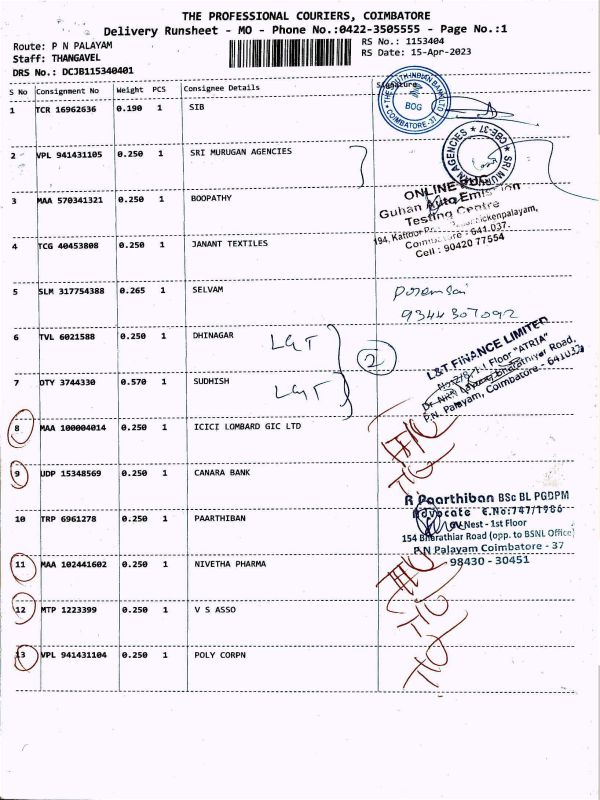 THE PROFESSIONAL COURIERS, COIMBATORE
Delivery Runsheet - MO - Phone No.:0422-3505555 - Page No.:1
Route: P N PALAYAM
RS No.: 1153404
Staff: THANGAVEL
RS Date: 15-Apr-2023
DRS No.: DCJB115340401
S No Consignment No Weight PCS Consignee Details Signature
1 TCR 16962636 0.190 1 SIB
THE SOUTH INDIAN BANK LTD
BOG
COIMBATORE - 37
2 VPL 941431105 0.250 1 SRI MURUGAN AGENCIES
CBE-37
3 MAA 570341321 0.250 1 BOOPATHY
ONLINE
Guhan Auto Emission
Testing Centre
194, Kattoor
Coimbatore - 641 037.
Cell : 90420 77554
4 TCG 40453808 0.250 1 JANANT TEXTILES
5 SLM 317754388 0.265 1 SELVAM
9344307092
6 TVL 6021588 0.250 1 DHINAGAR L&T
2
L&T FINANCE LIMITED
Floor "ATRIA"
Bharathiyar Road,
P.N. Palayam, Coimbatore - 641037
7 DTY 3744330 0.570 1 SUDHISH L&T
8 MAA 100004014 0.250 1 ICICI LOMBARD GIC LTD
9 UDP 15348569 0.250 1 CANARA BANK
10 TRP 6961278 0.250 1 PAARTHIBAN
R Paarthiban BSc BL PGDPM
Advocate E.No:747/1986
Nest - 1st Floor
154 Bharathiar Road (opp. to BSNL Office)
P.N Palayam Coimbatore - 37
98430 - 30451
11 MAA 102441602 0.250 1 NIVETHA PHARMA
12 MTP 1223399 0.250 1 V S ASSO
13 VPL 941431104 0.250 1 POLY CORPN